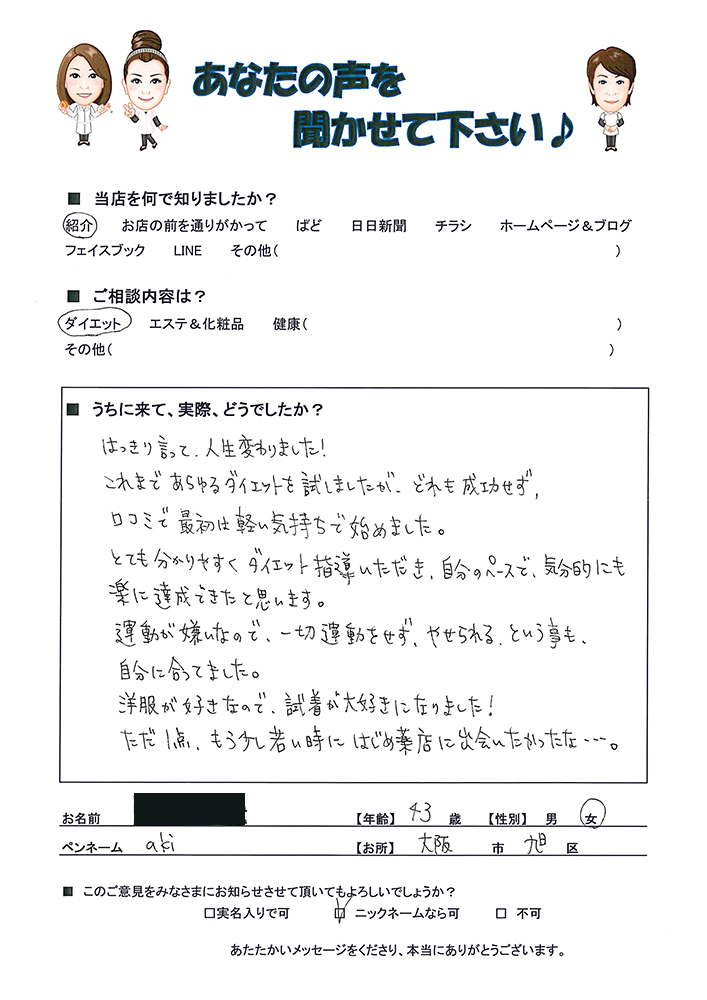 あなたの声を
聞かせて下さい♪
■ 当店を何で知りましたか？
紹介 お店の前を通りがかって ぱど 日日新聞 チラシ ホームページ＆ブログ
フェイスブック LINE その他( )
■ ご相談内容は？
ダイエット エステ＆化粧品 健康( )
その他( )
■ うちに来て、実際、どうでしたか？
はっきり言って、人生変わりました!
これまであらゆるダイエットを試しましたが、どれも成功せず、
口コミで最初は軽い気持ちで始めました。
とても分かりやすくダイエット指導いただき、自分のペースで、気分的にも
楽に達成できたと思います。
運動が嫌いなので、一切運動をせず、やせられる、という事も、
自分に合ってました。
洋服が好きなので、試着が大好きになりました!
ただ1点、もう少し若い時にはじめ薬店に出会いたかったな…。
お名前 【年齢】 43 歳 【性別】 男 女
ペンネーム aki 【お所】 大阪 市 旭 区
■ このご意見をみなさまにお知らせさせて頂いてもよろしいでしょうか？
□実名入りで可 □ ニックネームなら可 □ 不可
あたたかいメッセージをくださり、本当にありがとうございます。